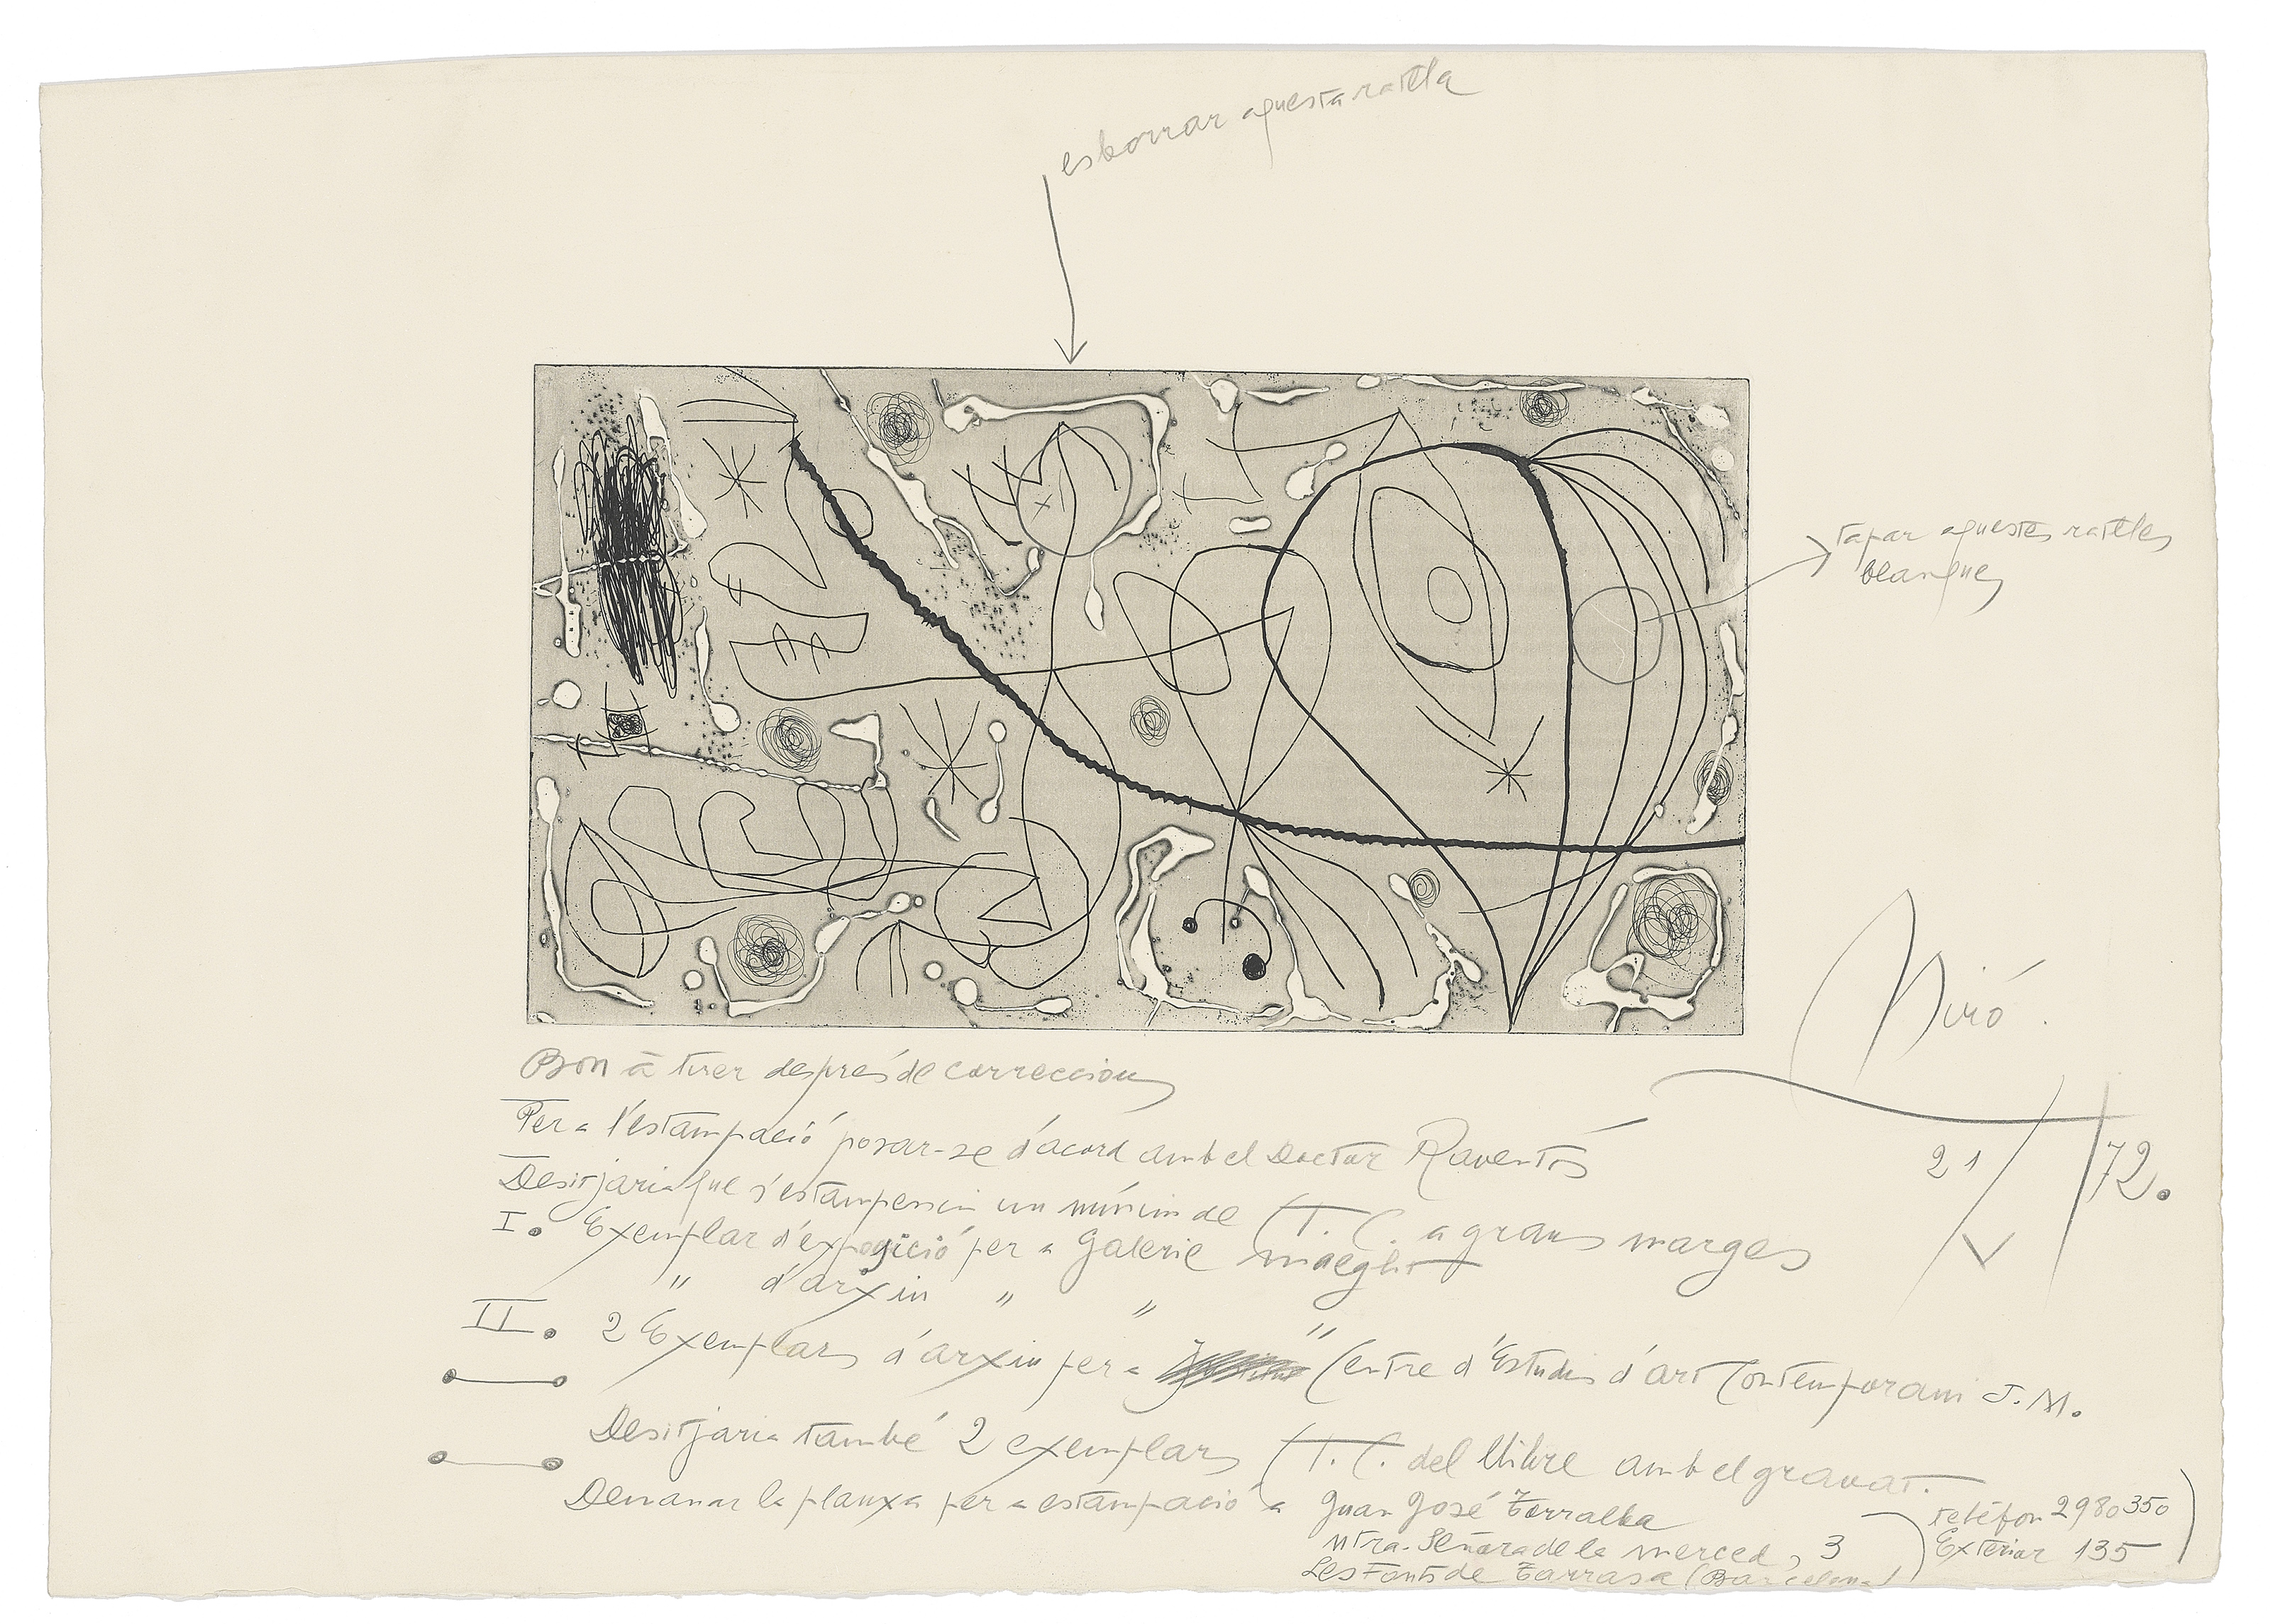 esborrar aquesta ratlla
tapar aquestes ratlles
blanques
Miró.
21/V/72.
Bon à tirer després de correccions
Per a l'estampació posar-se d'acord amb el Doctor Raventós
Desitjaria que s'estampessin un mínim de H.C. a grans marges
I. Exemplar d'exposició per a Galerie Maeght
" d'arxiu " " "
II. 2 Exemplars d'arxiu per a Centre d'Estudis d'art Contemporani J.M.
Desitjaria també 2 exemplars H.C. del llibre amb el gravat.
Demanar la planxa per a estampació a Juan José Torralba
Ntra. Señora de la Merced, 3
Les Fonts de Tarrasa (Barcelona)
telèfon 2980350
Exterior 135